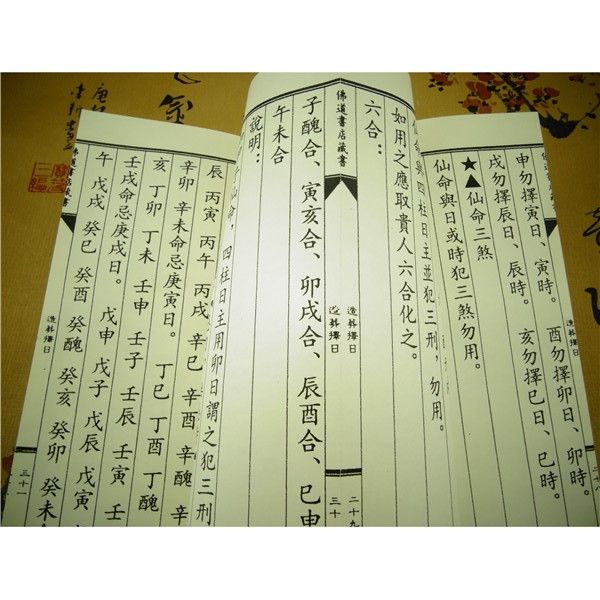 佛道書店藏書
造葬擇日
二十八
申勿擇寅日、寅時。 酉勿擇卯日、卯時。
戌勿擇辰日、辰時。 亥勿擇巳日、巳時。
★▲仙命三煞
仙命與日或時犯三煞勿用。
仙命與四柱日主並犯三刑，勿用。
如用之應取貴人六合化之。
六合：
造葬擇日
二十九
佛道書店藏書
造葬擇日
三十
子醜合、寅亥合、卯戌合、辰酉合、巳申
午未合
說明：
仙命，四柱日主用卯日謂之犯三刑
辰 丙寅 丙午 丙戌 辛巳 辛酉 辛醜 辛
辛卯 辛未命忌庚寅日。 丁巳 丁酉 丁醜
亥 丁卯 丁未 壬申 壬子 壬寅 壬
壬戌命忌庚戌日。 戊申 戊子 戊辰 戊寅
午 戊戌 癸巳 癸酉 癸醜 癸亥 癸卯 癸未
造葬擇日
三十一